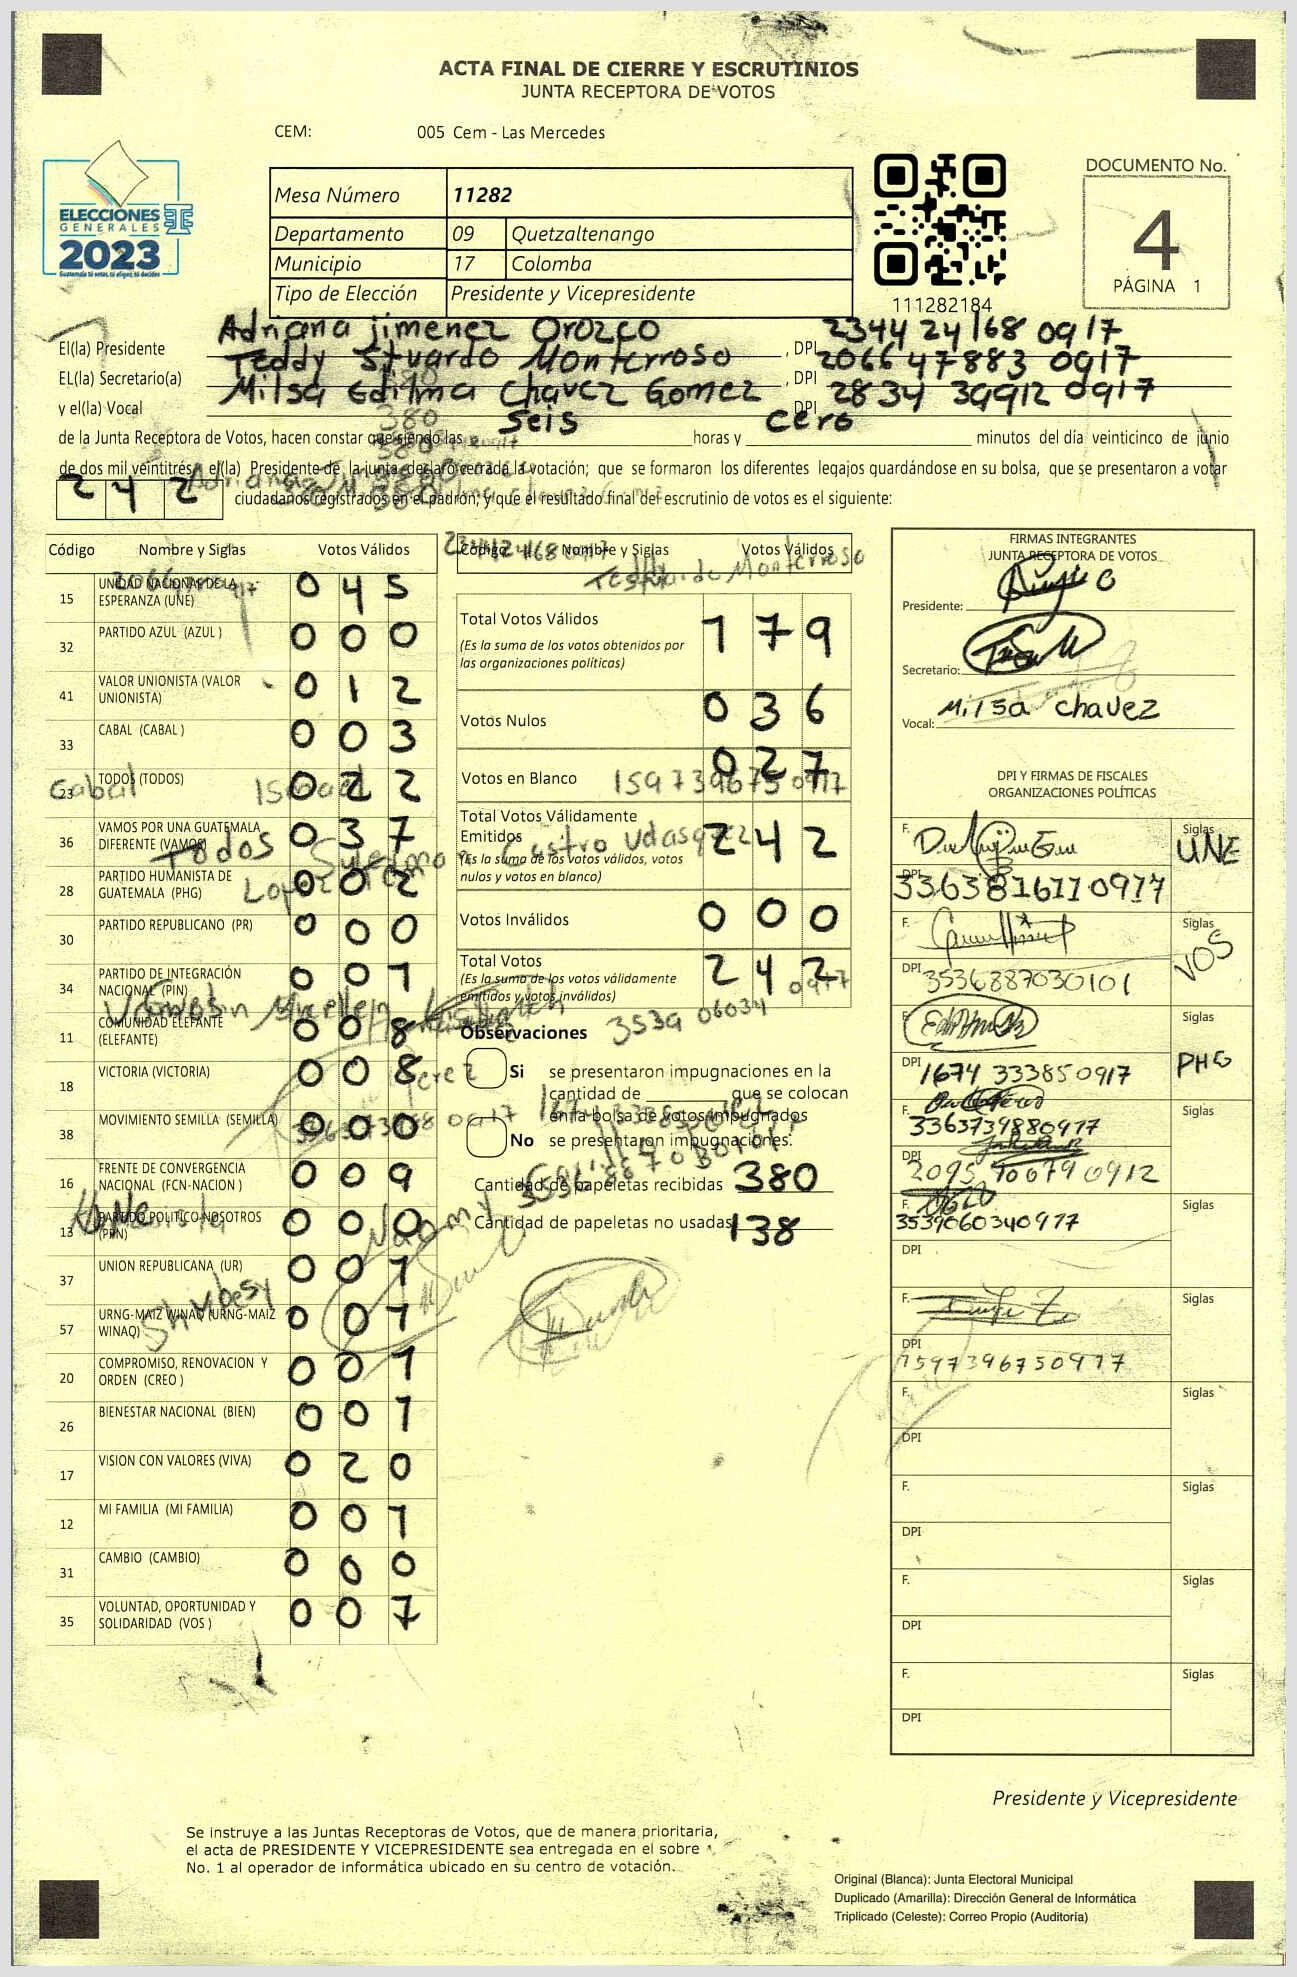 ACTA FINAL DE CIERRE Y ESCRUTINIOS
JUNTA RECEPTORA DE VOTOS
CEM: 005 Cem - Las Mercedes
ELECCIONES
GENERALES
2023
Guatemala tú votas, tú eliges, tú decides
Mesa Número 11282
Departamento 09 Quetzaltenango
Municipio 17 Colomba
Tipo de Elección Presidente y Vicepresidente
111282184
DOCUMENTO No.
4
PÁGINA 1
El(la) Presidente Adriana jimenez Orozco , DPI 2344 24168 0917
EL(la) Secretario(a) Teddy Stuardo Monterroso , DPI 2066 47883 0917
y el(la) Vocal Milsa Edilma Chavez Gomez DPI 2834 39912 0917
de la Junta Receptora de Votos, hacen constar que siendo las seis horas y cero minutos del día veinticinco de junio
de dos mil veintitrés, el(la) Presidente de la junta declaró cerrada la votación; que se formaron los diferentes legajos guardándose en su bolsa, que se presentaron a votar
242 ciudadanos registrados en el padrón, y que el resultado final del escrutinio de votos es el siguiente:
Código Nombre y Siglas Votos Válidos
15 UNIDAD NACIONAL DE LA ESPERANZA (UNE) 0 4 5
32 PARTIDO AZUL (AZUL ) 0 0 0
41 VALOR UNIONISTA (VALOR UNIONISTA) 0 1 2
33 CABAL (CABAL ) 0 0 3
23 TODOS (TODOS) 0 2 2
36 VAMOS POR UNA GUATEMALA DIFERENTE (VAMOS) 0 3 7
28 PARTIDO HUMANISTA DE GUATEMALA (PHG) 0 0 2
30 PARTIDO REPUBLICANO (PR) 0 0 0
34 PARTIDO DE INTEGRACIÓN NACIONAL (PIN) 0 0 1
11 COMUNIDAD ELEFANTE (ELEFANTE) 0 0 8
18 VICTORIA (VICTORIA) 0 0 8
38 MOVIMIENTO SEMILLA (SEMILLA) 0 0 0
16 FRENTE DE CONVERGENCIA NACIONAL (FCN-NACION ) 0 0 9
13 PARTIDO POLITICO NOSOTROS (PPN) 0 0 0
37 UNION REPUBLICANA (UR) 0 0 1
57 URNG-MAIZ WINAQ (URNG-MAIZ WINAQ) 0 0 1
20 COMPROMISO, RENOVACION Y ORDEN (CREO ) 0 0 1
26 BIENESTAR NACIONAL (BIEN) 0 0 1
17 VISION CON VALORES (VIVA) 0 2 0
12 MI FAMILIA (MI FAMILIA) 0 0 1
31 CAMBIO (CAMBIO) 0 0 0
35 VOLUNTAD, OPORTUNIDAD Y SOLIDARIDAD (VOS ) 0 0 7
Código Nombre y Siglas Votos Válidos
Total Votos Válidos 1 7 9
(Es la suma de los votos obtenidos por
las organizaciones políticas)
Votos Nulos 0 3 6
Votos en Blanco 0 2 7
Total Votos Válidamente
Emitidos 2 4 2
(Es la suma de los votos válidos, votos
nulos y votos en blanco)
Votos Inválidos 0 0 0
Total Votos 2 4 2
(Es la suma de los votos válidamente
emitidos y votos inválidos)
Observaciones
Si se presentaron impugnaciones en la
cantidad de que se colocan
en la bolsa de votos impugnados
No se presentaron impugnaciones.
Cantidad de papeletas recibidas 380
Cantidad de papeletas no usadas 138
FIRMAS INTEGRANTES
JUNTA RECEPTORA DE VOTOS
Presidente:
Secretario:
Vocal: Milsa chavez
DPI Y FIRMAS DE FISCALES
ORGANIZACIONES POLÍTICAS
F. Siglas UNE
DPI 3363816110917
F. Siglas VOS
DPI 3536887030101
F. Siglas PHG
DPI 1674 333850917
F. Siglas
3363739880917
DPI 2095 400790912
F. Siglas
3539060340977
DPI
F. Siglas
DPI 1597396750917
F. Siglas
DPI
F. Siglas
DPI
F. Siglas
DPI
F. Siglas
DPI
Presidente y Vicepresidente
Se instruye a las Juntas Receptoras de Votos, que de manera prioritaria,
el acta de PRESIDENTE Y VICEPRESIDENTE sea entregada en el sobre
No. 1 al operador de informática ubicado en su centro de votación.
Original (Blanca): Junta Electoral Municipal
Duplicado (Amarilla): Dirección General de Informática
Triplicado (Celeste): Correo Propio (Auditoría)